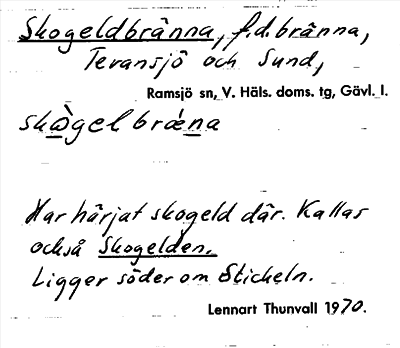 Skogeldbränna, f.d. bränna,
Tevansjö och Sund,
Ramsjö sn, V. Häls. doms. tg, Gävl. l.
skὼgel bräńa
Har härjat skogeld där. Kallas
också Skogelden.
Ligger söder om Stickeln.
Lennart Thunvall 1970.